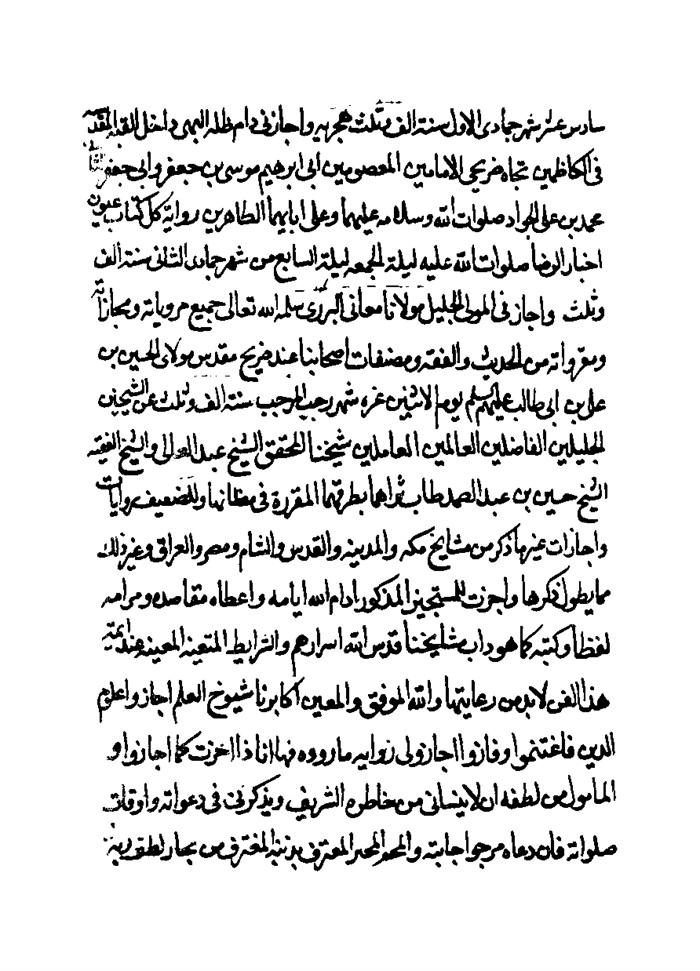 سادس عشر شهر جمادى الاول سنة الف وثلث هجريه واجازنى دام ظله البهى داخل القبة المقدسه
فى الكاظمين تجاه ضريحى الامامين المعصومين ابى ابرهيم موسى بن جعفر وابى جعفر الثانى
محمد بن على الجواد صلوات الله وسلامه عليهما وعلى ابايهما الطاهرين رواية كل كتاب عيون
اخبار الرضا صلوات الله عليه ليلة الجمعه ليلة السابع من شهر جمادى الثانى سنة الف
وثلث واجازنى المولى الجليل مولانا معانى التبريزى سلمه الله تعالى جميع مروياته ومجازاته
ومقرواته من الحديث والفقه ومصنفات اصحابنا عند ضريح مقدس مولاى الحسين بن
على بن ابى طالب عليهم السلم يوم الاثنين غره شهر رجب المرجب سنة الف وثلث عن الشيخين
الجليلين الفاضلين العالمين العاملين شيخنا المحقق الشيخ عبد العالى والشيخ الفقيه
الشيخ حسين بن عبد الصمد طاب ثراهما بطرقهما المقررة فى مظانها وللضعيف روايات
واجازات غير ما ذكر من مشايخ مكه والمدينه والقدس والشام ومصر والعراق وغير ذلك
مما يطول ذكرها واجزت للمستجيز المذكور ادام الله ايامه واعطاه مقاصده ومرامه
لفظا وكتبه كما هو داب مشايخنا قدس الله اسرارهم والشرايط المتعينه المعينه عند ايمة
هذا الفن لابد من رعايتها والله الموفق والمعين اكابرنا شيوخ العلم اجازوا علوم
الدين فاغتنموا وفازوا اجازوا لى رواية ما رووه فها انا ذا اجزت كما اجازوا و
المامول من لطفه ان لا ينسانى من خاطره الشريف ويذكرنى فى دعواته واوقات
صلواته فان دعاه مرجوا جابته والمجيز المعترف بذنبه المغترف من بحار لطف ربه